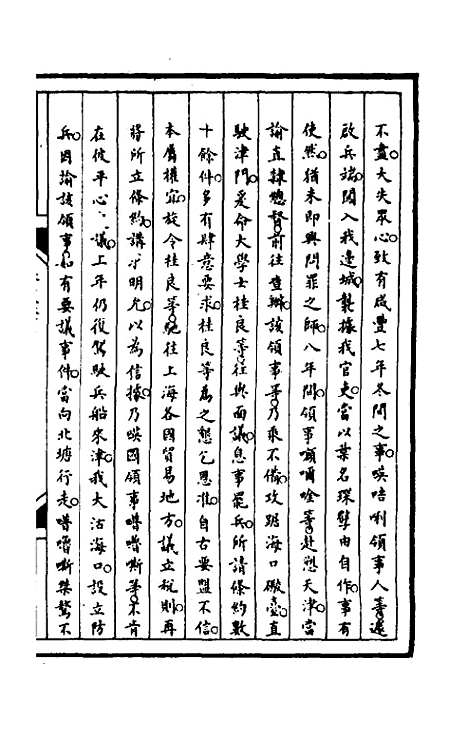 不盡大失眾心致有咸豐七年冬間之事嘆咭唎領事人等遽
啟兵端闖入我邊城戴據我官吏當以葉名琛孽由自作事有
使然猶未即興問罪之師八年間領事嘆嘓唫等赴愬天津當
諭直隸總督前往查辦該領事等乃乘不備攻踞海口礮臺直
駛津門爰命大學士桂良等往與面議息事罷兵所請條約數
十餘件多有肆意要求桂良等為之懇乞恩准自古要盟不信
本屬權宜旋令桂良等馳往上海各國貿易地方議立稅則再
將所立條約講求明允以為信據乃嘆國領事嚕嚕嘶等不肯
在彼平心 議上年仍復駕駛兵船來津我大沽海口設立防
兵因諭該領事如有要議事件當向北塘行走嚕嚕嘶桀驁不